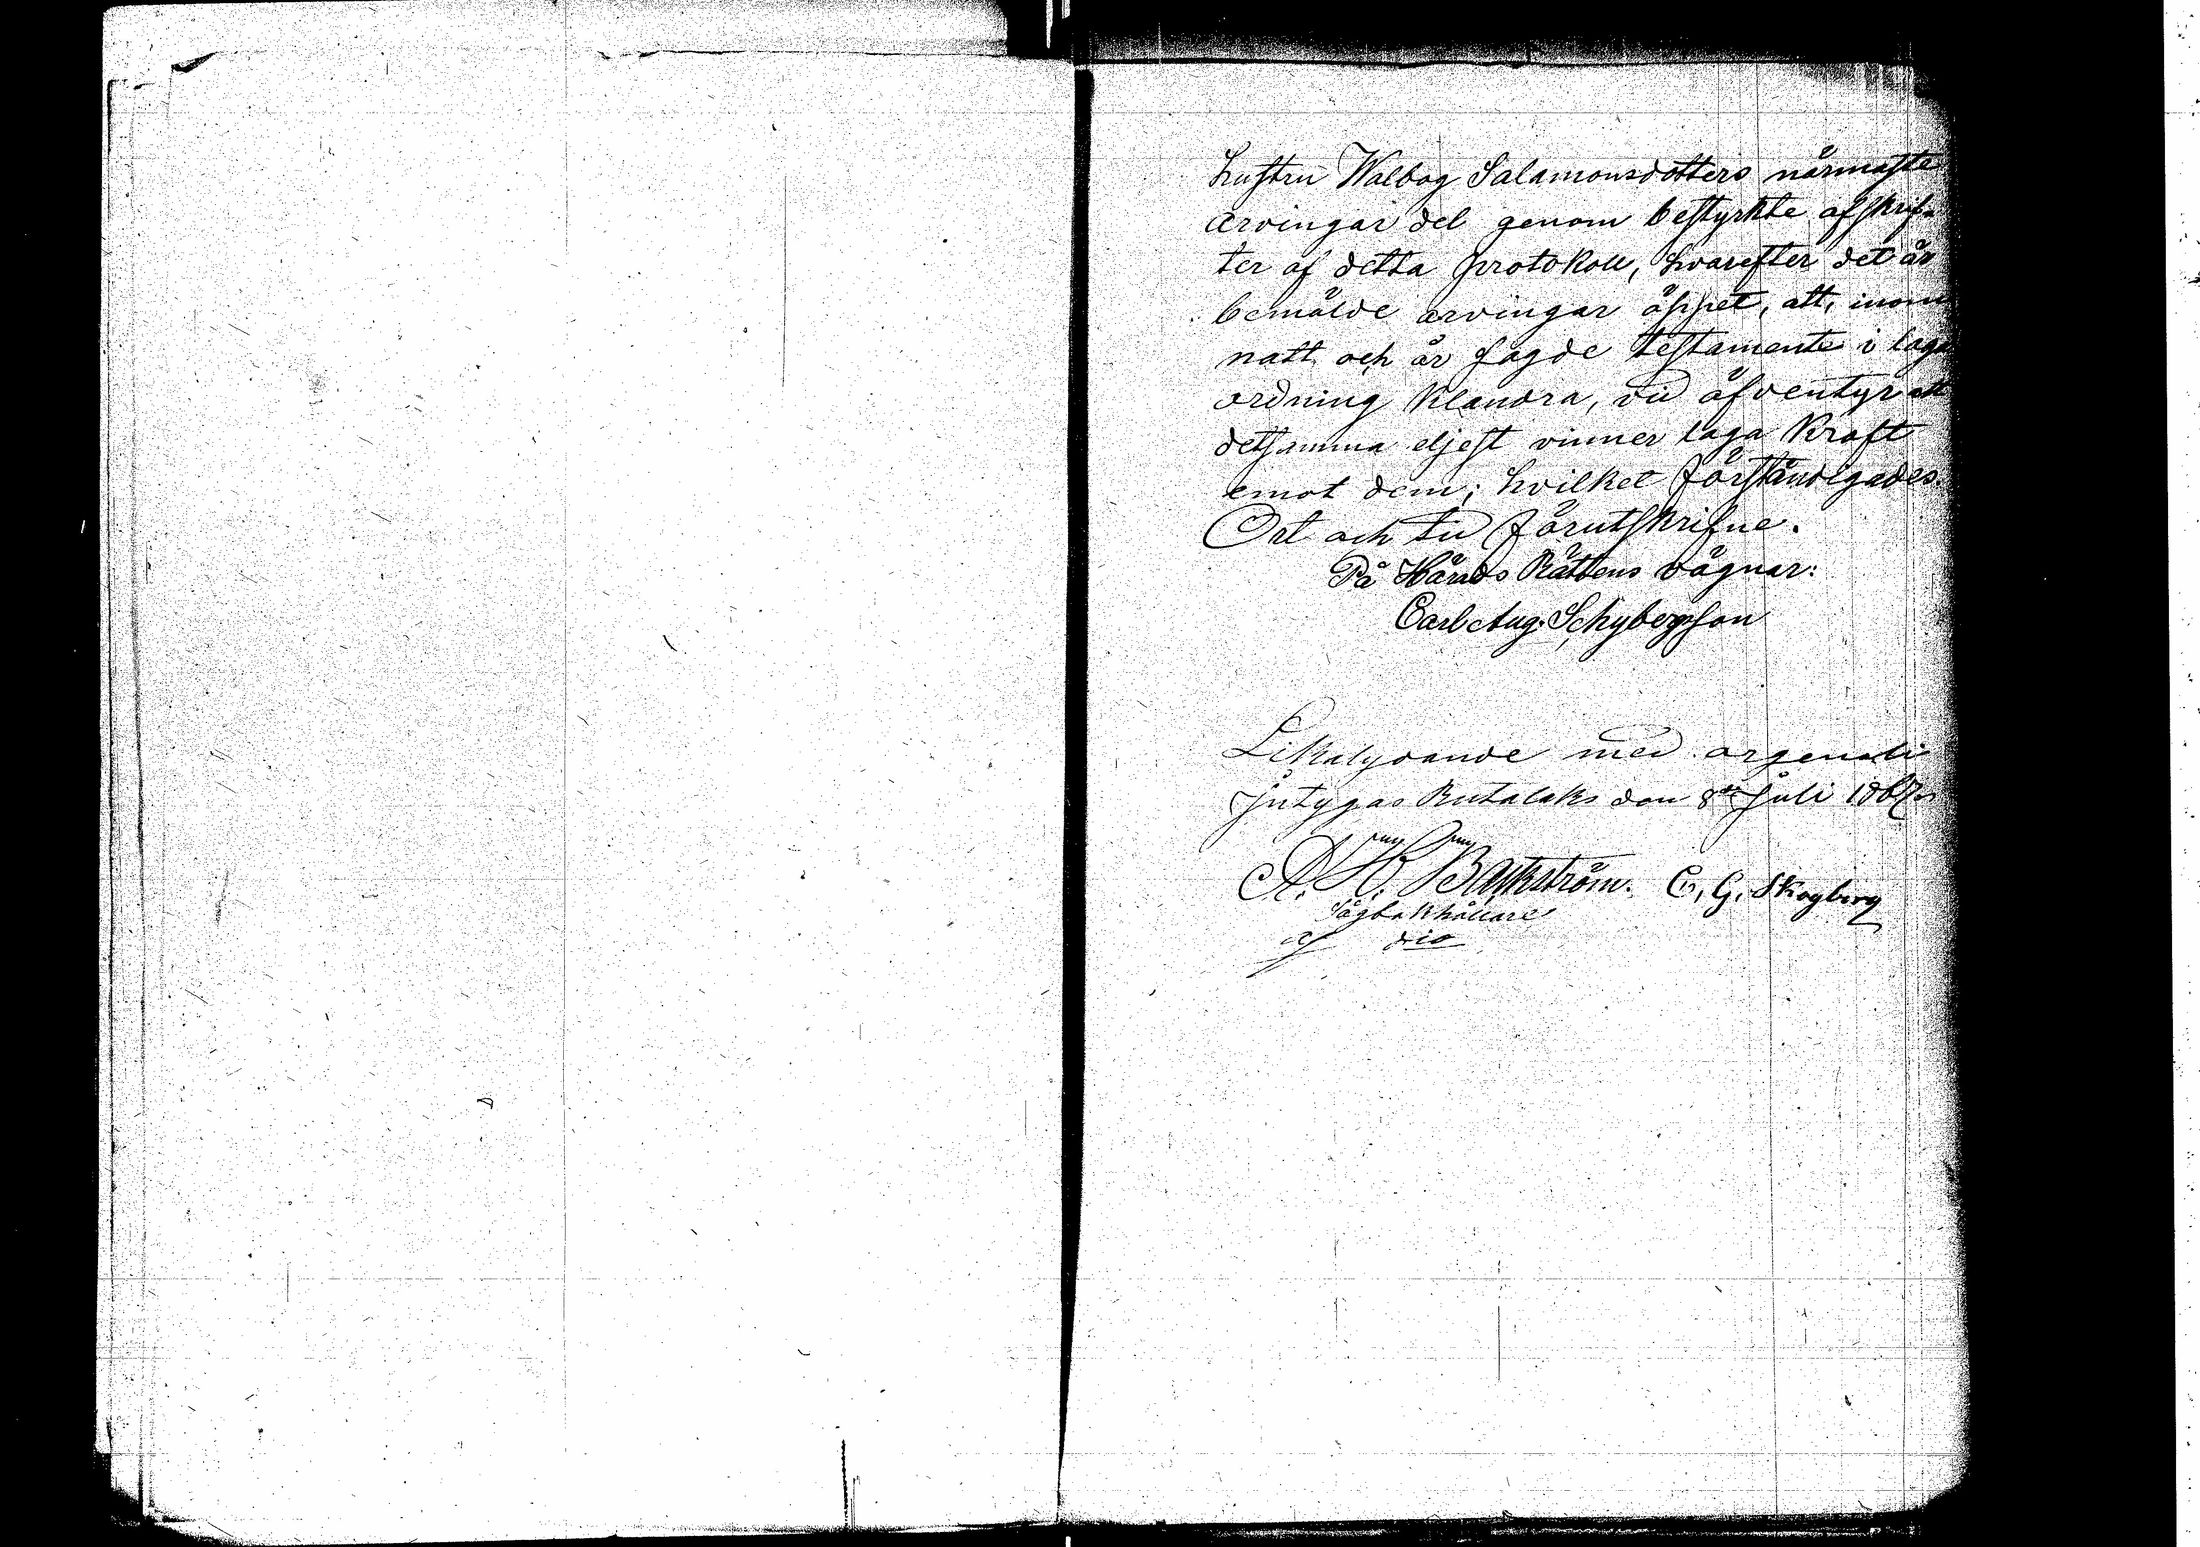 hustru Walbog Salamonsdotters närmaste
arvingar del genom bestyrkte afskrif-
ter af detta protokoll, hvarefter det är
bemälde arvingar öppet, att, inom
natt och år sagde testamente i laga
ordning klandra, vid äfventyr att
detsamma eljest vinner laga kraft
emot dem; hvilket förständigades.
Ort och tid förutskrifne.
På Härads Rättens vägnar:
Carl Aug. Schybergson
Likalydande med orgenali
intygas Rutalaks den 8de Juli 1867
A. H. Backström. C. G. Skogberg
Sågbokhållare